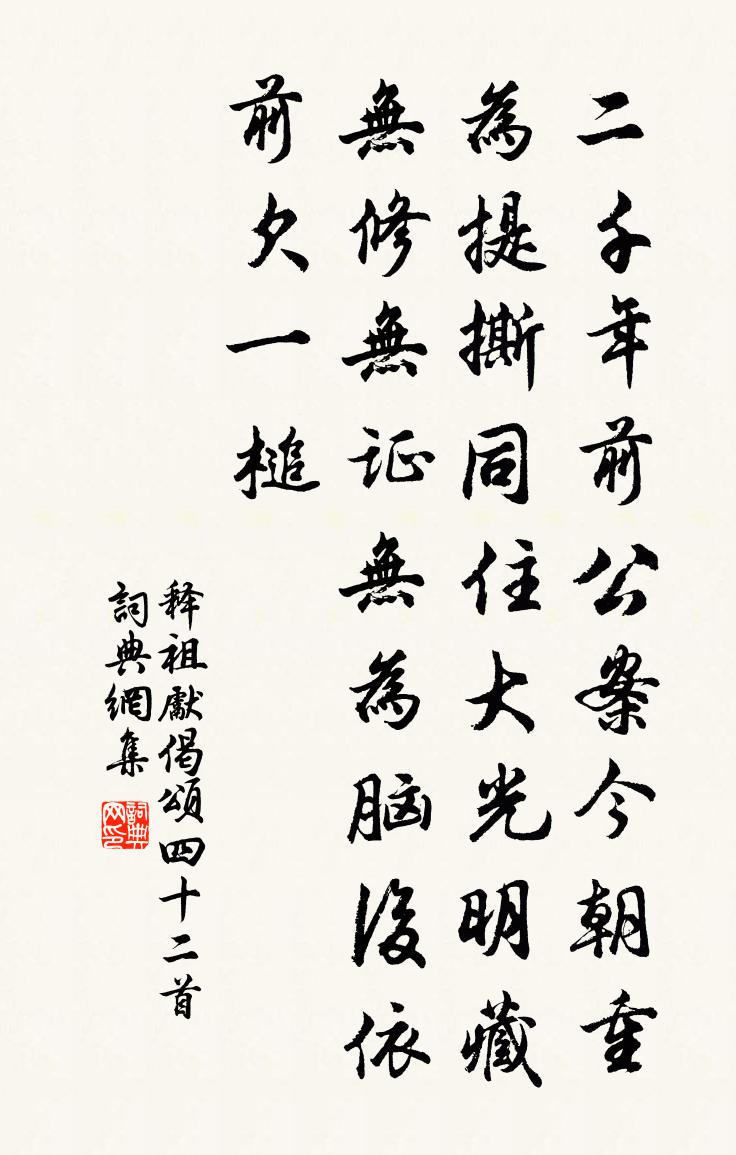 二千年前公案今朝重
為提撕同住大光明藏
無修無证無為脑後依
前欠一槌
释祖獻偈頌四十二首
詞典網集
詞典网印